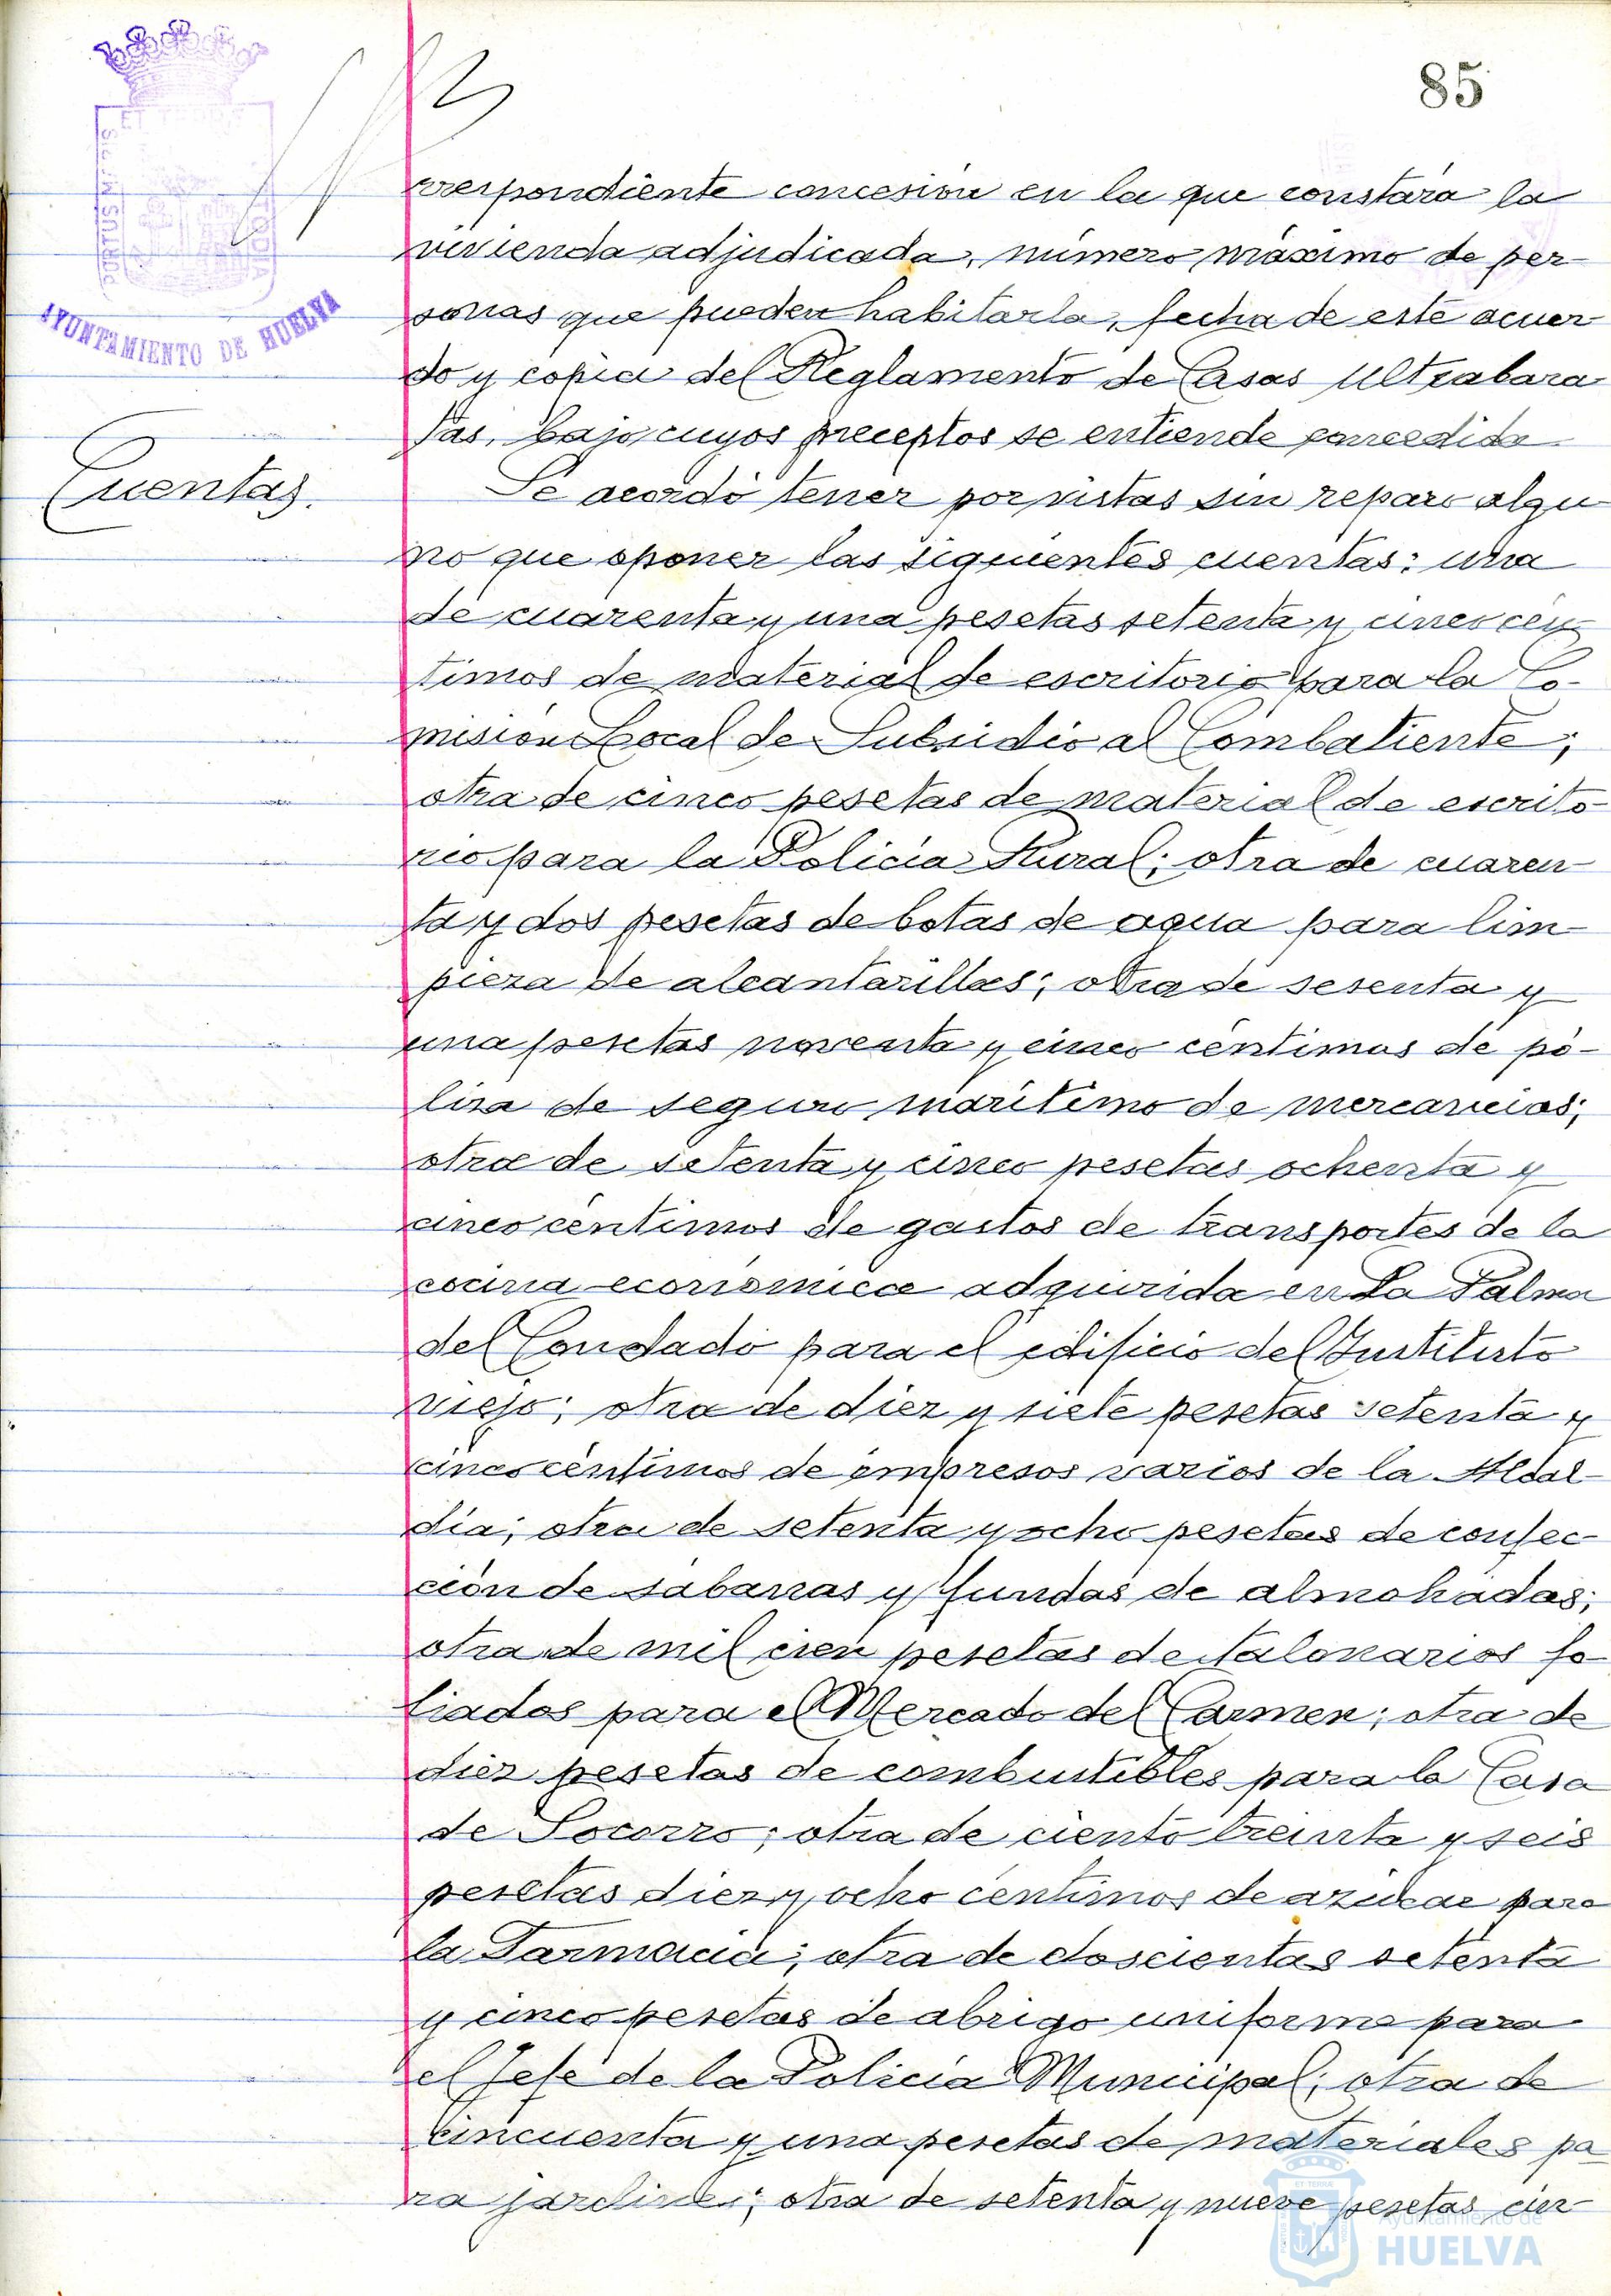 85
rrespondiente concesión en la que constará la
vivienda adjudicada, número máximo de per-
sonas que pueden habitarla, fecha de este acuer
do y copia del Reglamento de Casas Ultrabara
tas, bajo cuyos preceptos se entiende concedida.
Cuentas.
Se acordó tener por vistas sin reparo algu
no que oponer las siguientes cuentas: una
de cuarenta y una pesetas setenta y cinco cén
timos de material de escritorio para la Co-
misión Local de Subsidio al Combatiente;
otra de cinco pesetas de material de escrito-
rio para la Policía Rural; otra de cuaren-
ta y dos pesetas de botas de agua para lim-
pieza de alcantarillas; otra de sesenta y
una pesetas noventa y cinco céntimos de pó-
liza de seguro marítimo de mercancias;
otra de setenta y cinco pesetas ochenta y
cinco céntimos de gastos de transportes de la
cocina económica adquirida en La Palma
del Condado para el edificio del Instituto
viejo; otra de diez y siete pesetas setenta y
cinco céntimos de impresos varios de la Alcal-
día; otra de setenta y ocho pesetas de confec-
ción de sábanas y fundas de almohadas;
otra de mil cien pesetas de talonarios fo-
liados para el Mercado del Carmen; otra de
diez pesetas de combustibles para la Casa
de Socorro; otra de ciento treinta y seis
pesetas diez y ocho céntimos de azúcar para
la Farmacia; otra de doscientas setenta
y cinco pesetas de abrigo uniforme para
el Jefe de la Policía Municipal; otra de
cincuenta y una pesetas de materiales pa-
ra jardines; otra de setenta y nueve pesetas cin-
AYUNTAMIENTO DE HUELVA
Ayuntamiento de
HUELVA